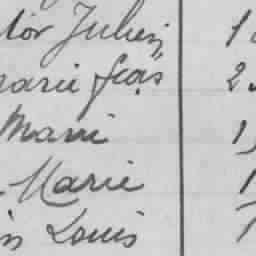 tor Julien 1
marie frcs 2
Marie 1
Marie 1
in Louis 1